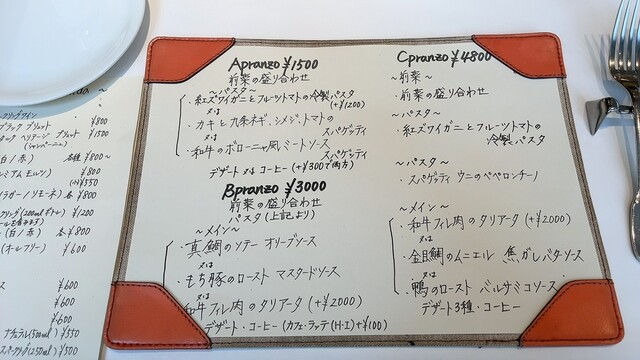 クリングワイン
¥800
ブラック ブリュット ¥1500
(シャンパーニュ)
白/赤) 各種 ¥800～
ミアム モルツ) ¥800
(+¥550
/リモーネ) 各¥800
リング(200mlボトル) ¥1200
(白/赤) 各¥800
(オールフリー) ¥600
ス ¥600
¥600
¥600
ナチュラル(500ml) ¥550
スパークリング(250ml) ¥500
Apranzo ¥1500
前菜の盛り合わせ
～パスタ～
・紅ズワイガニとフルーツトマトの冷製パスタ
(+¥1200)
又は
・カキと九条ネギ、シメジ、トマトの
スパゲッティ
又は
・和牛のボローニャ風ミートソース
スパゲッティ
デザート 又は コーヒー (+¥300で両方)
Bpranzo ¥3000
前菜の盛り合わせ
パスタ (上記より)
～メイン～
・真鯛のソテー オリーブソース
又は
・もち豚のロースト マスタードソース
又は
和牛フィレ肉のタリアータ (+¥2000)
デザート・コーヒー (カフェ・ラッテ(H・I)+¥100)
Cpranzo ¥4800
～前菜～
・前菜の盛り合わせ
～パスタ～
・紅ズワイガニとフルーツトマトの
冷製パスタ
～パスタ～
・スパゲッティ ウニのペペロンチーノ
～メイン～
・和牛フィレ肉のタリアータ (+¥2000)
又は
・金目鯛のムニエル 焦がしバターソース
又は
・鴨のロースト バルサミコソース
デザート3種・コーヒー